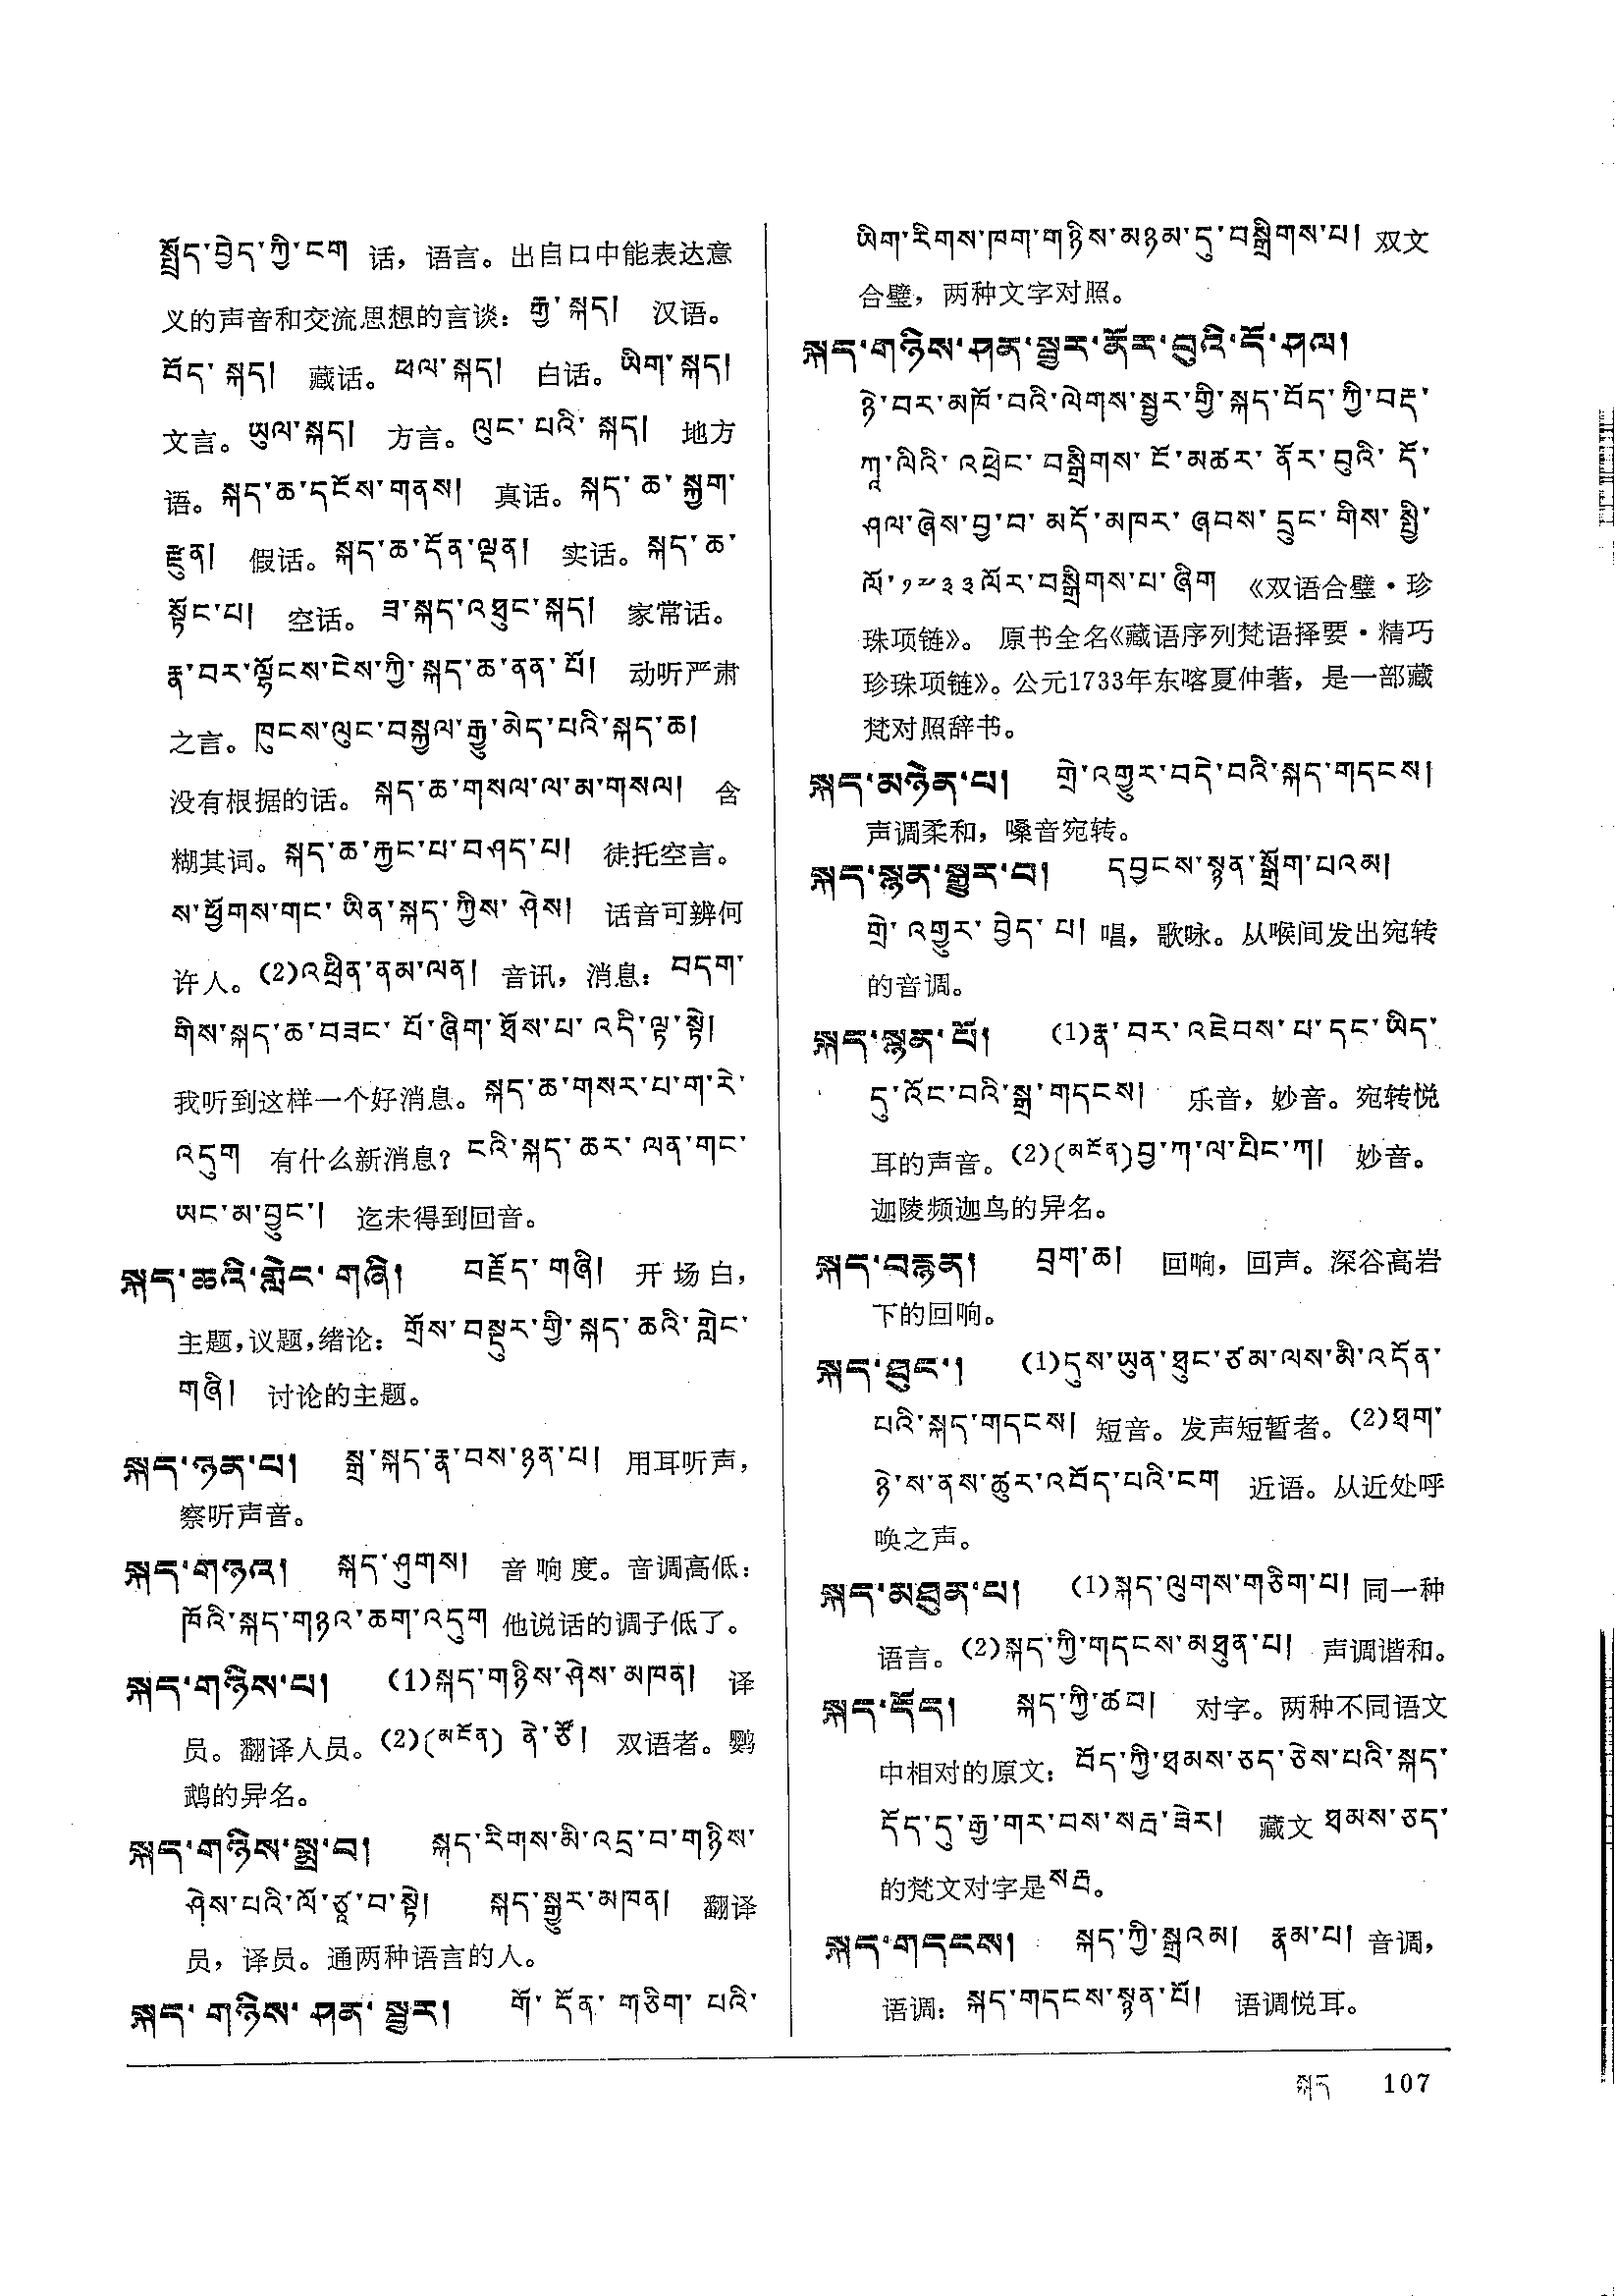 སྤྲོད་བྱེད་ཀྱི་ངག 话，语言。出自口中能表达意
义的声音和交流思想的言谈：རྒྱ་སྐད། 汉语。
བོད་སྐད། 藏话。ཕལ་སྐད། 白话。ཡིག་སྐད།
文言。ཡུལ་སྐད། 方言。ལུང་པའི་སྐད། 地方
语。སྐད་ཆ་དངོས་གནས། 真话。སྐད་ཆ་སྐྱག་
རྫུན། 假话。སྐད་ཆ་དོན་ལྡན། 实话。སྐད་ཆ་
སྟོང་པ། 空话。ཟ་སྐད་འཐུང་སྐད། 家常话。
རྣ་བར་ལྷོངས་ངེས་ཀྱི་སྐད་ཆ་ནན་པོ། 动听严肃
之言。ཁུངས་ལུང་བསྐྱལ་རྒྱུ་མེད་པའི་སྐད་ཆ།
没有根据的话。སྐད་ཆ་གསལ་ལ་མ་གསལ། 含
糊其词。སྐད་ཆ་རྐྱང་པ་བཤད་པ། 徒托空言。
ས་ཕྱོགས་གང་ཡིན་སྐད་ཀྱིས་ཤེས། 话音可辨何
许人。(2)འཕྲིན་ནམ་ལན། 音讯，消息：བདག་
གིས་སྐད་ཆ་བཟང་པོ་ཞིག་ཐོས་པ་འདི་ལྟ་སྟེ།
我听到这样一个好消息。སྐད་ཆ་གསར་པ་ག་རེ་
འདུག 有什么新消息？ངའི་སྐད་ཆར་ལན་གང་
ཡང་མ་བྱུང་། 迄未得到回音。
སྐད་ཆའི་གླེང་གཞི། བརྗོད་གཞི། 开场白，
主题，议题，绪论：གྲོས་བསྡུར་གྱི་སྐད་ཆའི་གླེང་
གཞི། 讨论的主题。
སྐད་ཉན་པ། སྒྲ་སྐད་རྣ་བས་ཉན་པ། 用耳听声，
察听声音。
སྐད་གཉའ། སྐད་ཤུགས། 音响度。音调高低：
ཁོའི་སྐད་གཉའ་ཆག་འདུག 他说话的调子低了。
སྐད་གཉིས་པ། (1)སྐད་གཉིས་ཤེས་མཁན། 译
员。翻译人员。(2)(མངོན) ནེ་ཙོ། 双语者。鹦
鹉的异名。
སྐད་གཉིས་སྨྲ་བ། སྐད་རིགས་མི་འདྲ་བ་གཉིས་
ཤེས་པའི་ལོ་ཙཱ་བ་སྟེ། སྐད་སྒྱུར་མཁན། 翻译
员，译员。通两种语言的人。
སྐད་གཉིས་ཤན་སྦྱར། གོ་དོན་གཅིག་པའི་
ཡིག་རིགས་ཁག་གཉིས་མཉམ་དུ་བསྒྲིགས་པ། 双文
合璧，两种文字对照。
སྐད་གཉིས་ཤན་སྦྱར་ནོར་བུའི་དོ་ཤལ།
ཉེ་བར་མཁོ་བའི་ལེགས་སྦྱར་གྱི་སྐད་བོད་ཀྱི་བརྡ་
ཀཱ་ལིའི་འཕྲེང་བསྒྲིགས་ངོ་མཚར་ནོར་བུའི་དོ་
ཤལ་ཞེས་བྱ་བ་མདོ་མཁར་ཞབས་དྲུང་གིས་སྤྱི་
ལོ་༡༧༣༣ལོར་བསྒྲིགས་པ་ཞིག 《双语合璧·珍
珠项链》。 原书全名《藏语序列梵语择要·精巧
珍珠项链》。公元1733年东喀夏仲著，是一部藏
梵对照辞书。
སྐད་མཉེན་པ། གྲེ་འགྱུར་བདེ་བའི་སྐད་གདངས།
声调柔和，嗓音宛转。
སྐད་སྙན་སྒྱུར་བ། དབྱངས་སྙན་སྒྲོག་པའམ།
གྲེ་འགྱུར་བྱེད་པ། 唱，歌咏。从喉间发出宛转
的音调。
སྐད་སྙན་པོ། (1)རྣ་བར་འཇེབས་པ་དང་ཡིད་
དུ་འོང་བའི་སྒྲ་གདངས། 乐音，妙音。宛转悦
耳的声音。(2)(མངོན)བྱ་ཀ་ལ་པིང་ཀ། 妙音。
迦陵频迦鸟的异名。
སྐད་བརྙན། བྲག་ཆ། 回响，回声。深谷高岩
下的回响。
སྐད་ཐུང་། (1)དུས་ཡུན་ཐུང་ཙམ་ལས་མི་འདོན་
པའི་སྐད་གདངས། 短音。发声短暂者。(2)ཐག་
ཉེ་ས་ནས་ཚུར་འབོད་པའི་ངག 近语。从近处呼
唤之声。
སྐད་མཐུན་པ། (1)སྐད་ལུགས་གཅིག་པ། 同一种
语言。(2)སྐད་ཀྱི་གདངས་མཐུན་པ། 声调谐和。
སྐད་དོད། སྐད་ཀྱི་ཚབ། 对字。两种不同语文
中相对的原文：བོད་ཀྱི་ཐམས་ཅད་ཅེས་པའི་སྐད་
དོད་དུ་རྒྱ་གར་བས་སརྦ་ཟེར། 藏文 ཐམས་ཅད་
的梵文对字是སརྦ。
སྐད་གདངས། སྐད་ཀྱི་སྒྲའམ། རྣམ་པ། 音调，
语调：སྐད་གདངས་སྙན་པོ། 语调悦耳。
སྐད 107